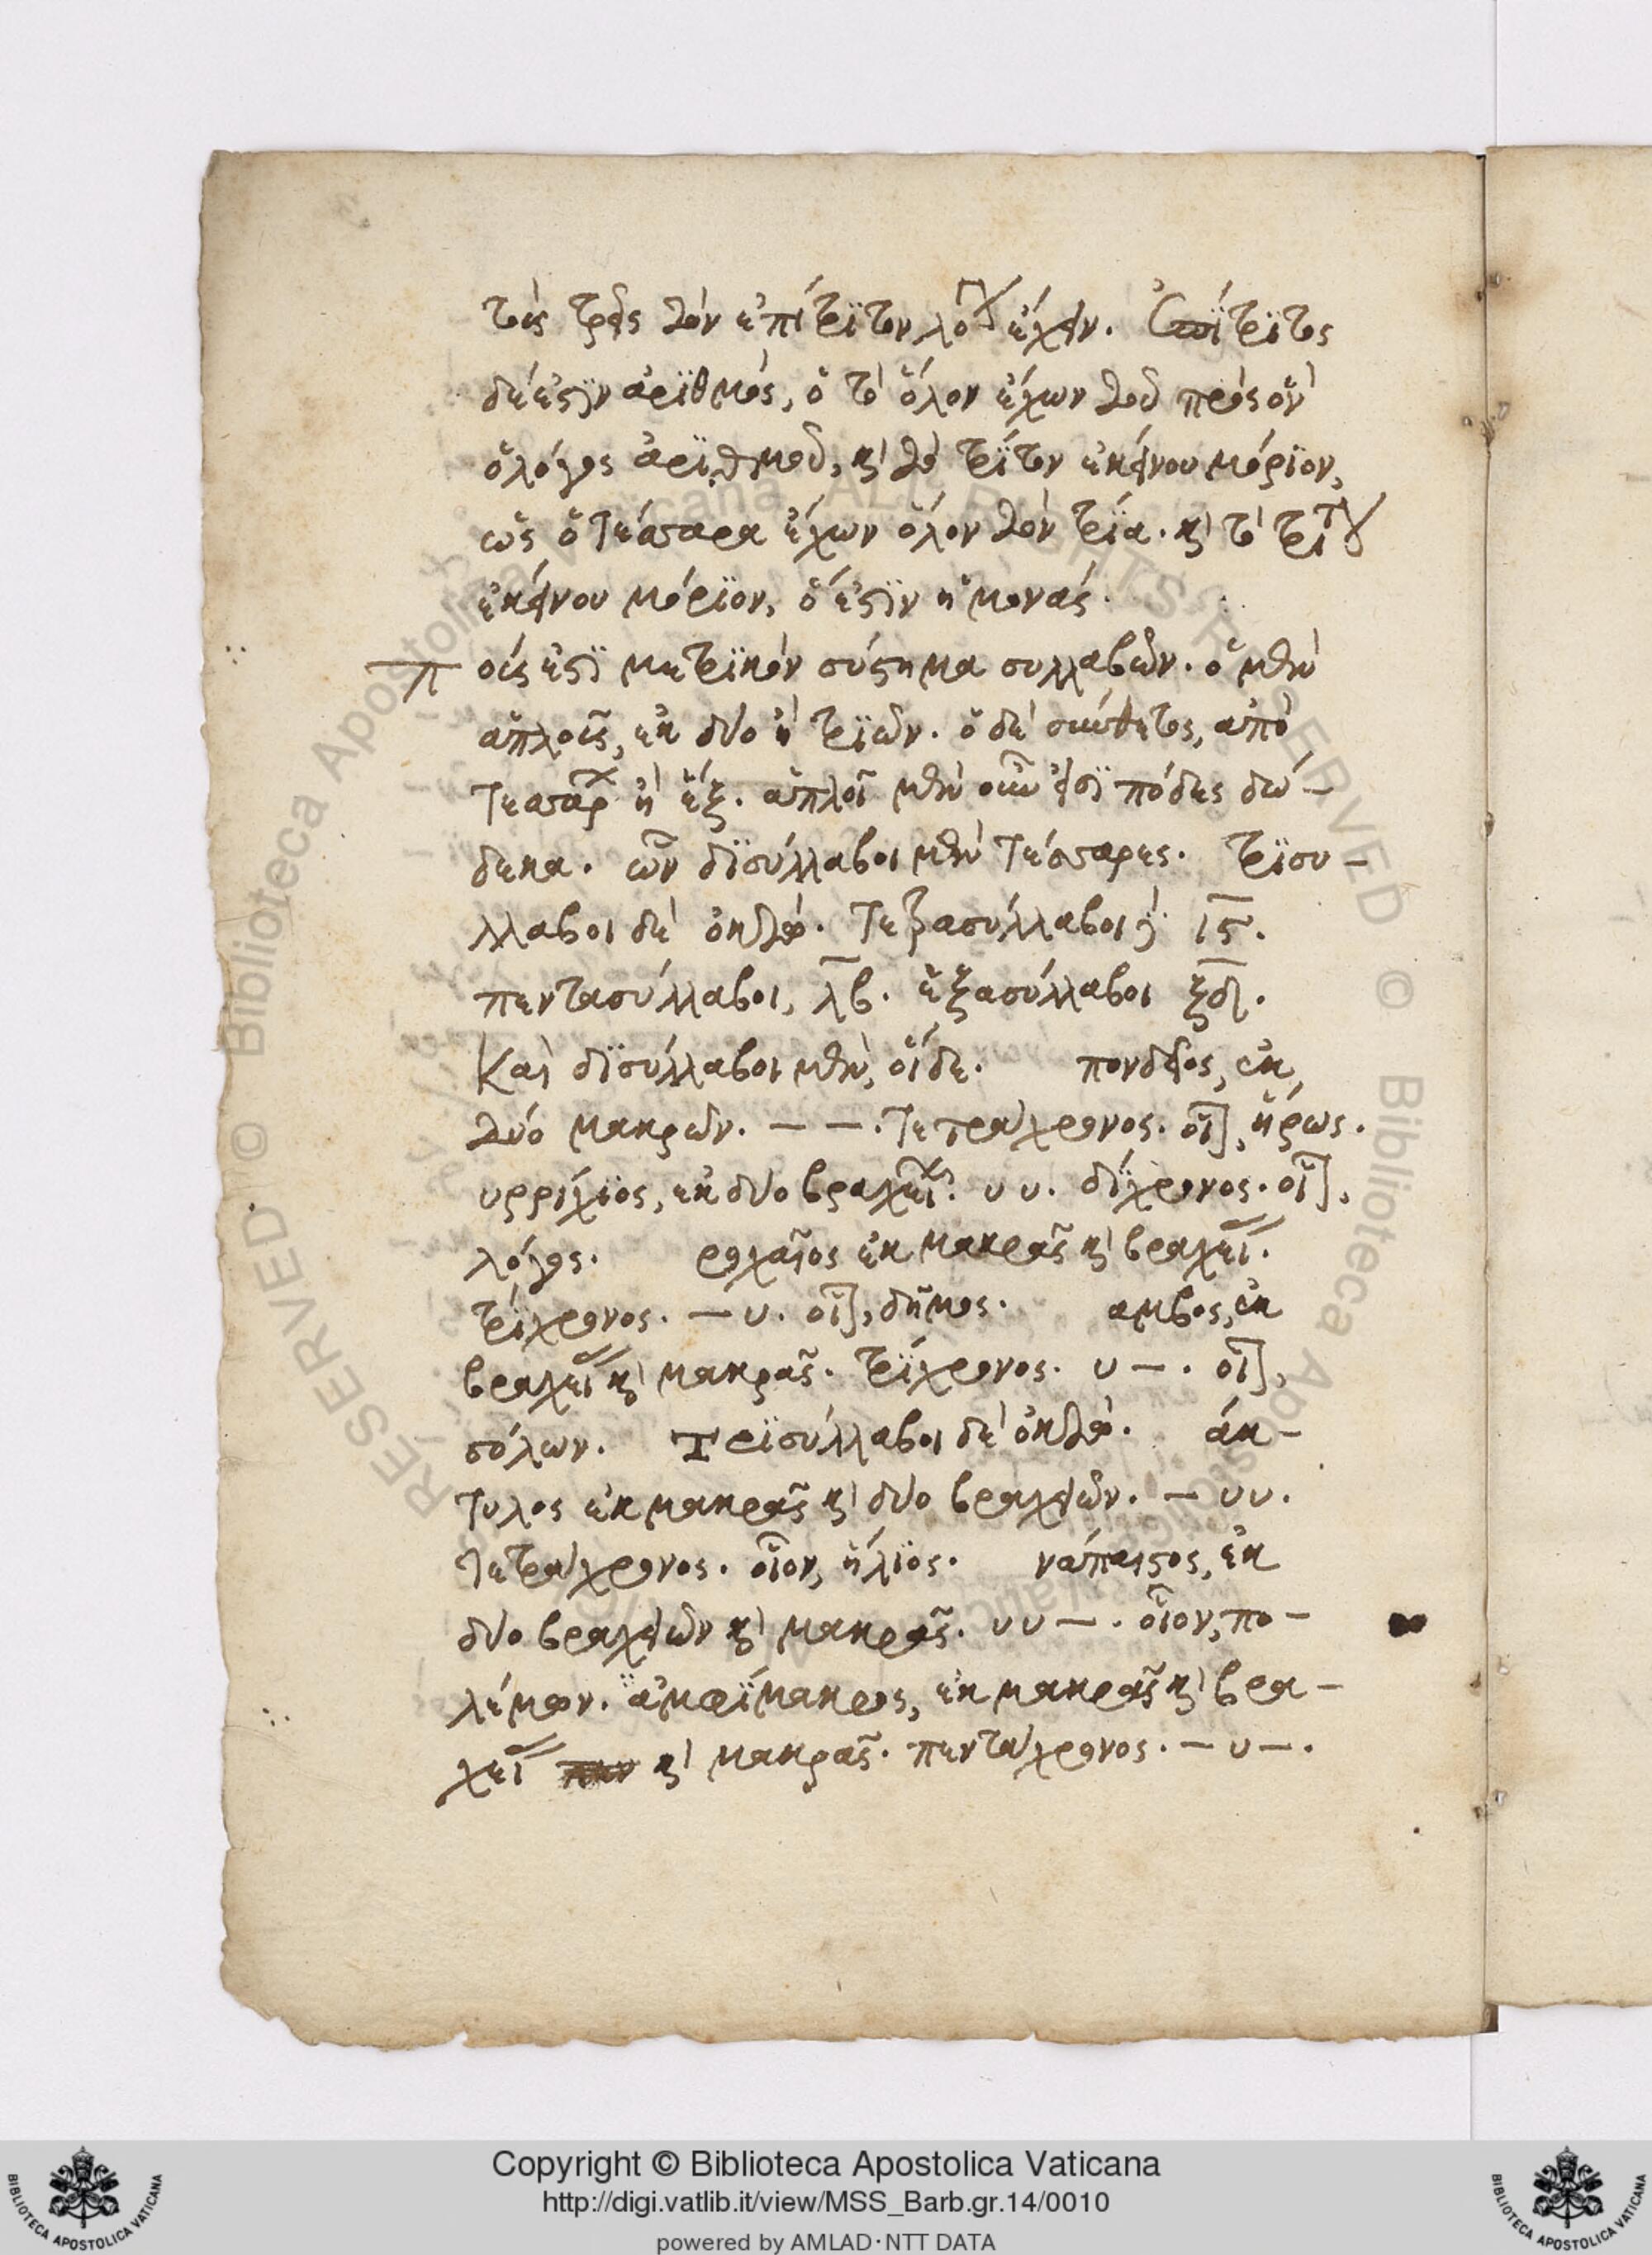 τοὺς τρεῖς τὸν ἐπίτριτον λόγον ἔχειν. Ἐπίτριτος
δέ ἐστιν ἀριθμὸς, ὁ τὸ ὅλον ἔχων τοῦ πρὸς ὃν
ὁ λόγος ἀριθμοῦ, καὶ τὸ τρίτον ἐκείνου μόριον,
ὡς ὁ τέσσαρα ἔχων ὅλον τὸν τρία. καὶ τὸ τρίτον
ἐκείνου μόριον, ὅ ἐστιν ἡ μονάς.
Π οὺς ἐστὶ μετρικὸν σύστημα συλλαβῶν. ὁ μὲν
ἁπλοῦς, ἐκ δύο ἢ τριῶν. ὁ δὲ σύνθετος, ἀπὸ
τεσσάρων ἢ ἕξ. ἁπλοῖ μὲν οὖν εἰσὶ πόδες δώ-
δεκα. ὧν δισύλλαβοι μὲν τέσσαρες. τρισυ-
λλαβοι δὲ ὀκτώ. τετρασύλλαβοι δὲ ις.
πεντασύλλαβοι, λβ. ἑξασύλλαβοι ξδ.
Καὶ δισύλλαβοι μὲν, οἵδε. πονδεῖος, ἐκ
δύο μακρῶν. – –. τετράχρονος. οἷον, ἥρως.
υρρίχιος, ἐκ δύο βραχειῶν. υ υ. δίχρονος. οἷον,
λόγος. ροχαῖος ἐκ μακρᾶς καὶ βραχείας.
τρίχρονος. – υ. οἷον, δῆμος. αμβος, ἐκ
βραχείας καὶ μακρᾶς. τρίχρονος. υ –. οἷον,
σόλων. Τρισύλλαβοι δὲ ὀκτώ. άκ-
τυλος ἐκ μακρᾶς καὶ δύο βραχειῶν. – υ υ.
τετράχρονος. οἷον, ἥλιος. νάπαιστος, ἐκ
δύο βραχειῶν καὶ μακρᾶς. υ υ –. οἷον, πο-
λέμων. ἀμφίμακρος, ἐκ μακρᾶς καὶ βρα-
χείας καὶ μακρᾶς. πεντάχρονος. – υ –.
Copyright © Biblioteca Apostolica Vaticana
http://digi.vatlib.it/view/MSS_Barb.gr.14/0010
powered by AMLAD·NTT DATA